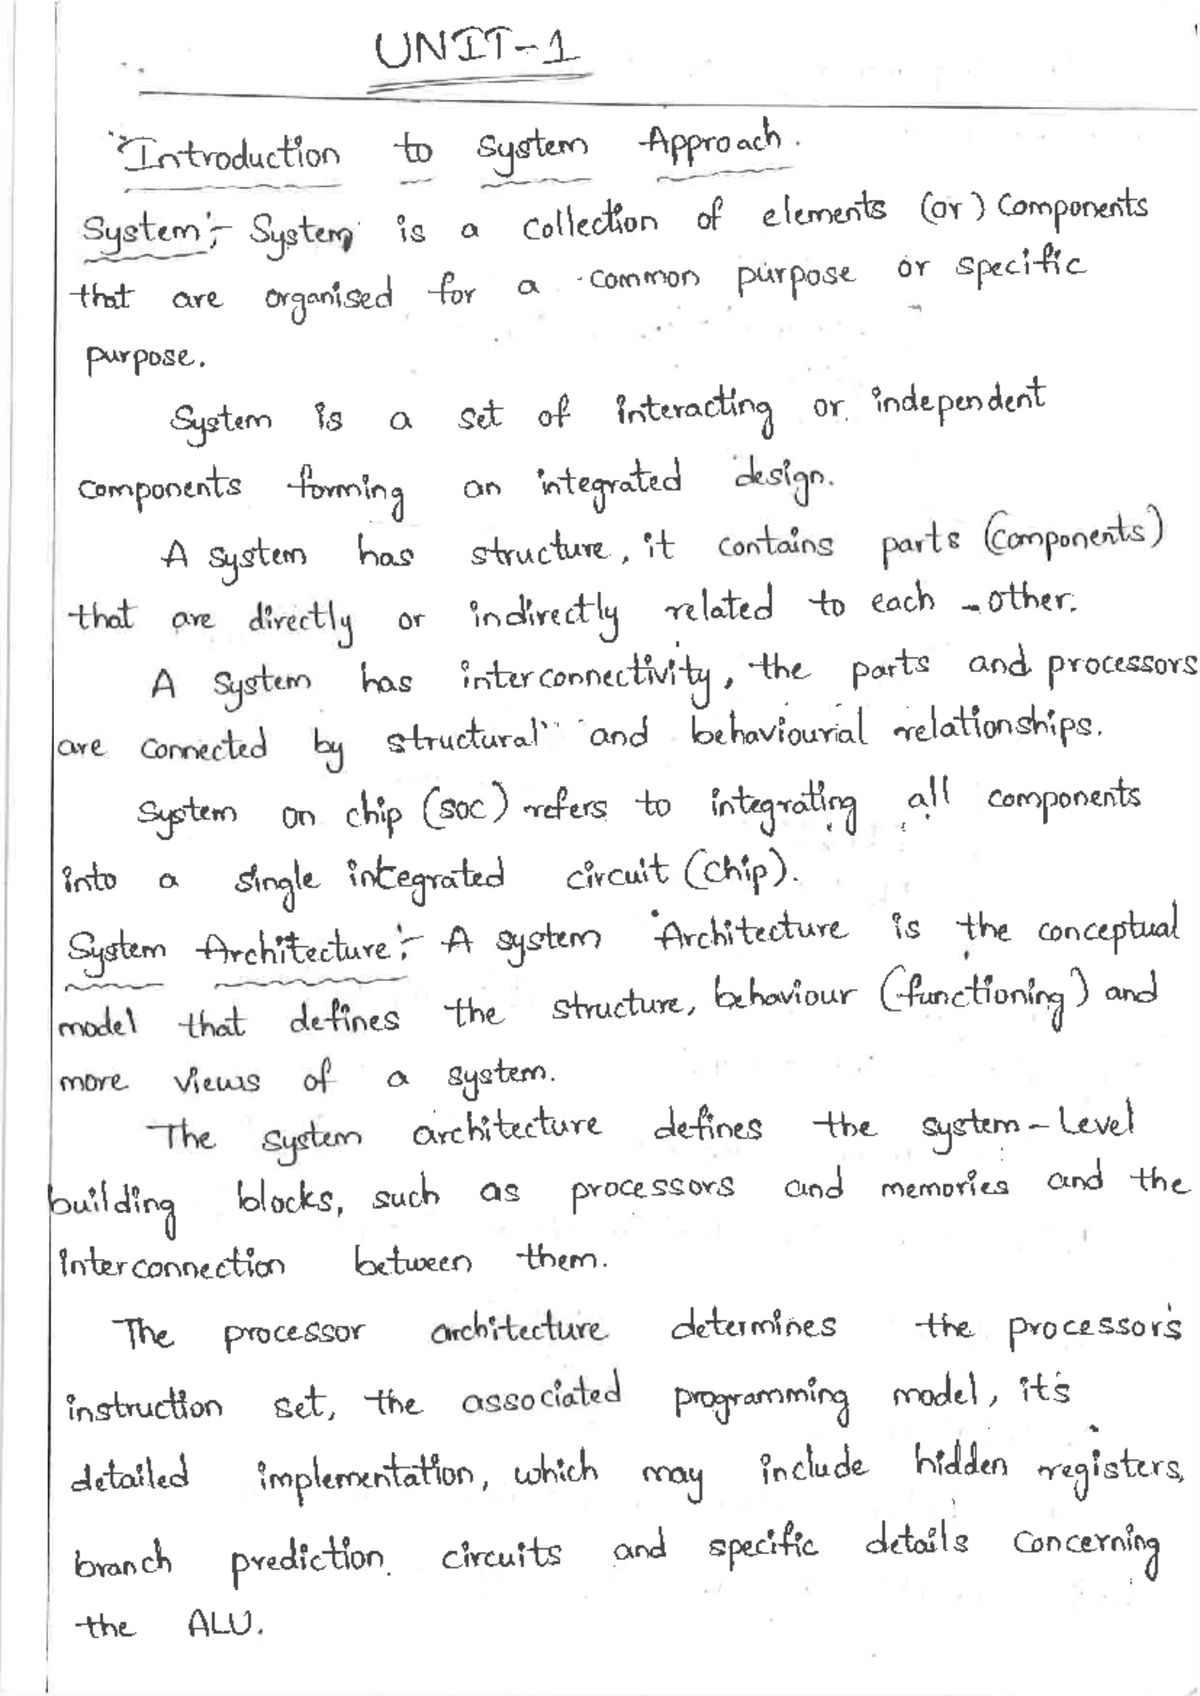 UNIT-1
Introduction to System Approach.
System:- System is a collection of elements (or) components
that are organised for a common purpose or specific
purpose.
System is a set of interacting or independent
components forming an integrated design.
A system has structure, it contains parts (components)
that are directly or indirectly related to each-other.
A system has interconnectivity, the parts and processors
are connected by structural and behaviourial relationships.
System on chip (SOC) refers to integrating all components
into a single integrated circuit (chip).
System Architecture:- A system Architecture is the conceptual
model that defines the structure, behaviour (functioning) and
more views of a system.
The system architecture defines the system-level
building blocks, such as processors and memories and the
interconnection between them.
The processor architecture determines the processor's
instruction set, the associated programming model, it's
detailed implementation, which may include hidden registers,
branch prediction circuits and specific details concerning
the ALU.